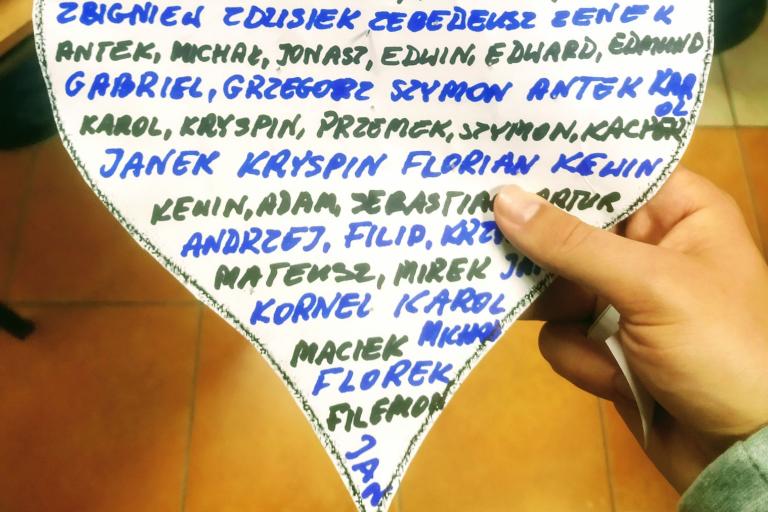 ZBIGNIEW ZDZISIEK ZEBEDEUSZ ZENEK
ANTEK, MICHAŁ, JONASZ, EDWIN, EDWARD, EDMUND
GABRIEL, GRZEGORZ SZYMON ANTEK KAROL
KAROL, KRYSPIN, PRZEMEK, SZYMON, KACPER
JANEK KRYSPIN FLORIAN KEWIN
KEWIN, ADAM, SEBASTIAN ARTUR
ANDRZEJ, FILIP,
MATEUSZ, MIREK
KORNEL KAROL
MACIEK MICHAŁ
FLOREK
FILEMON
JAN